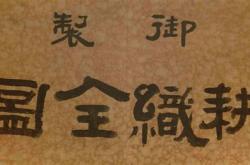 御製
耕織全圖